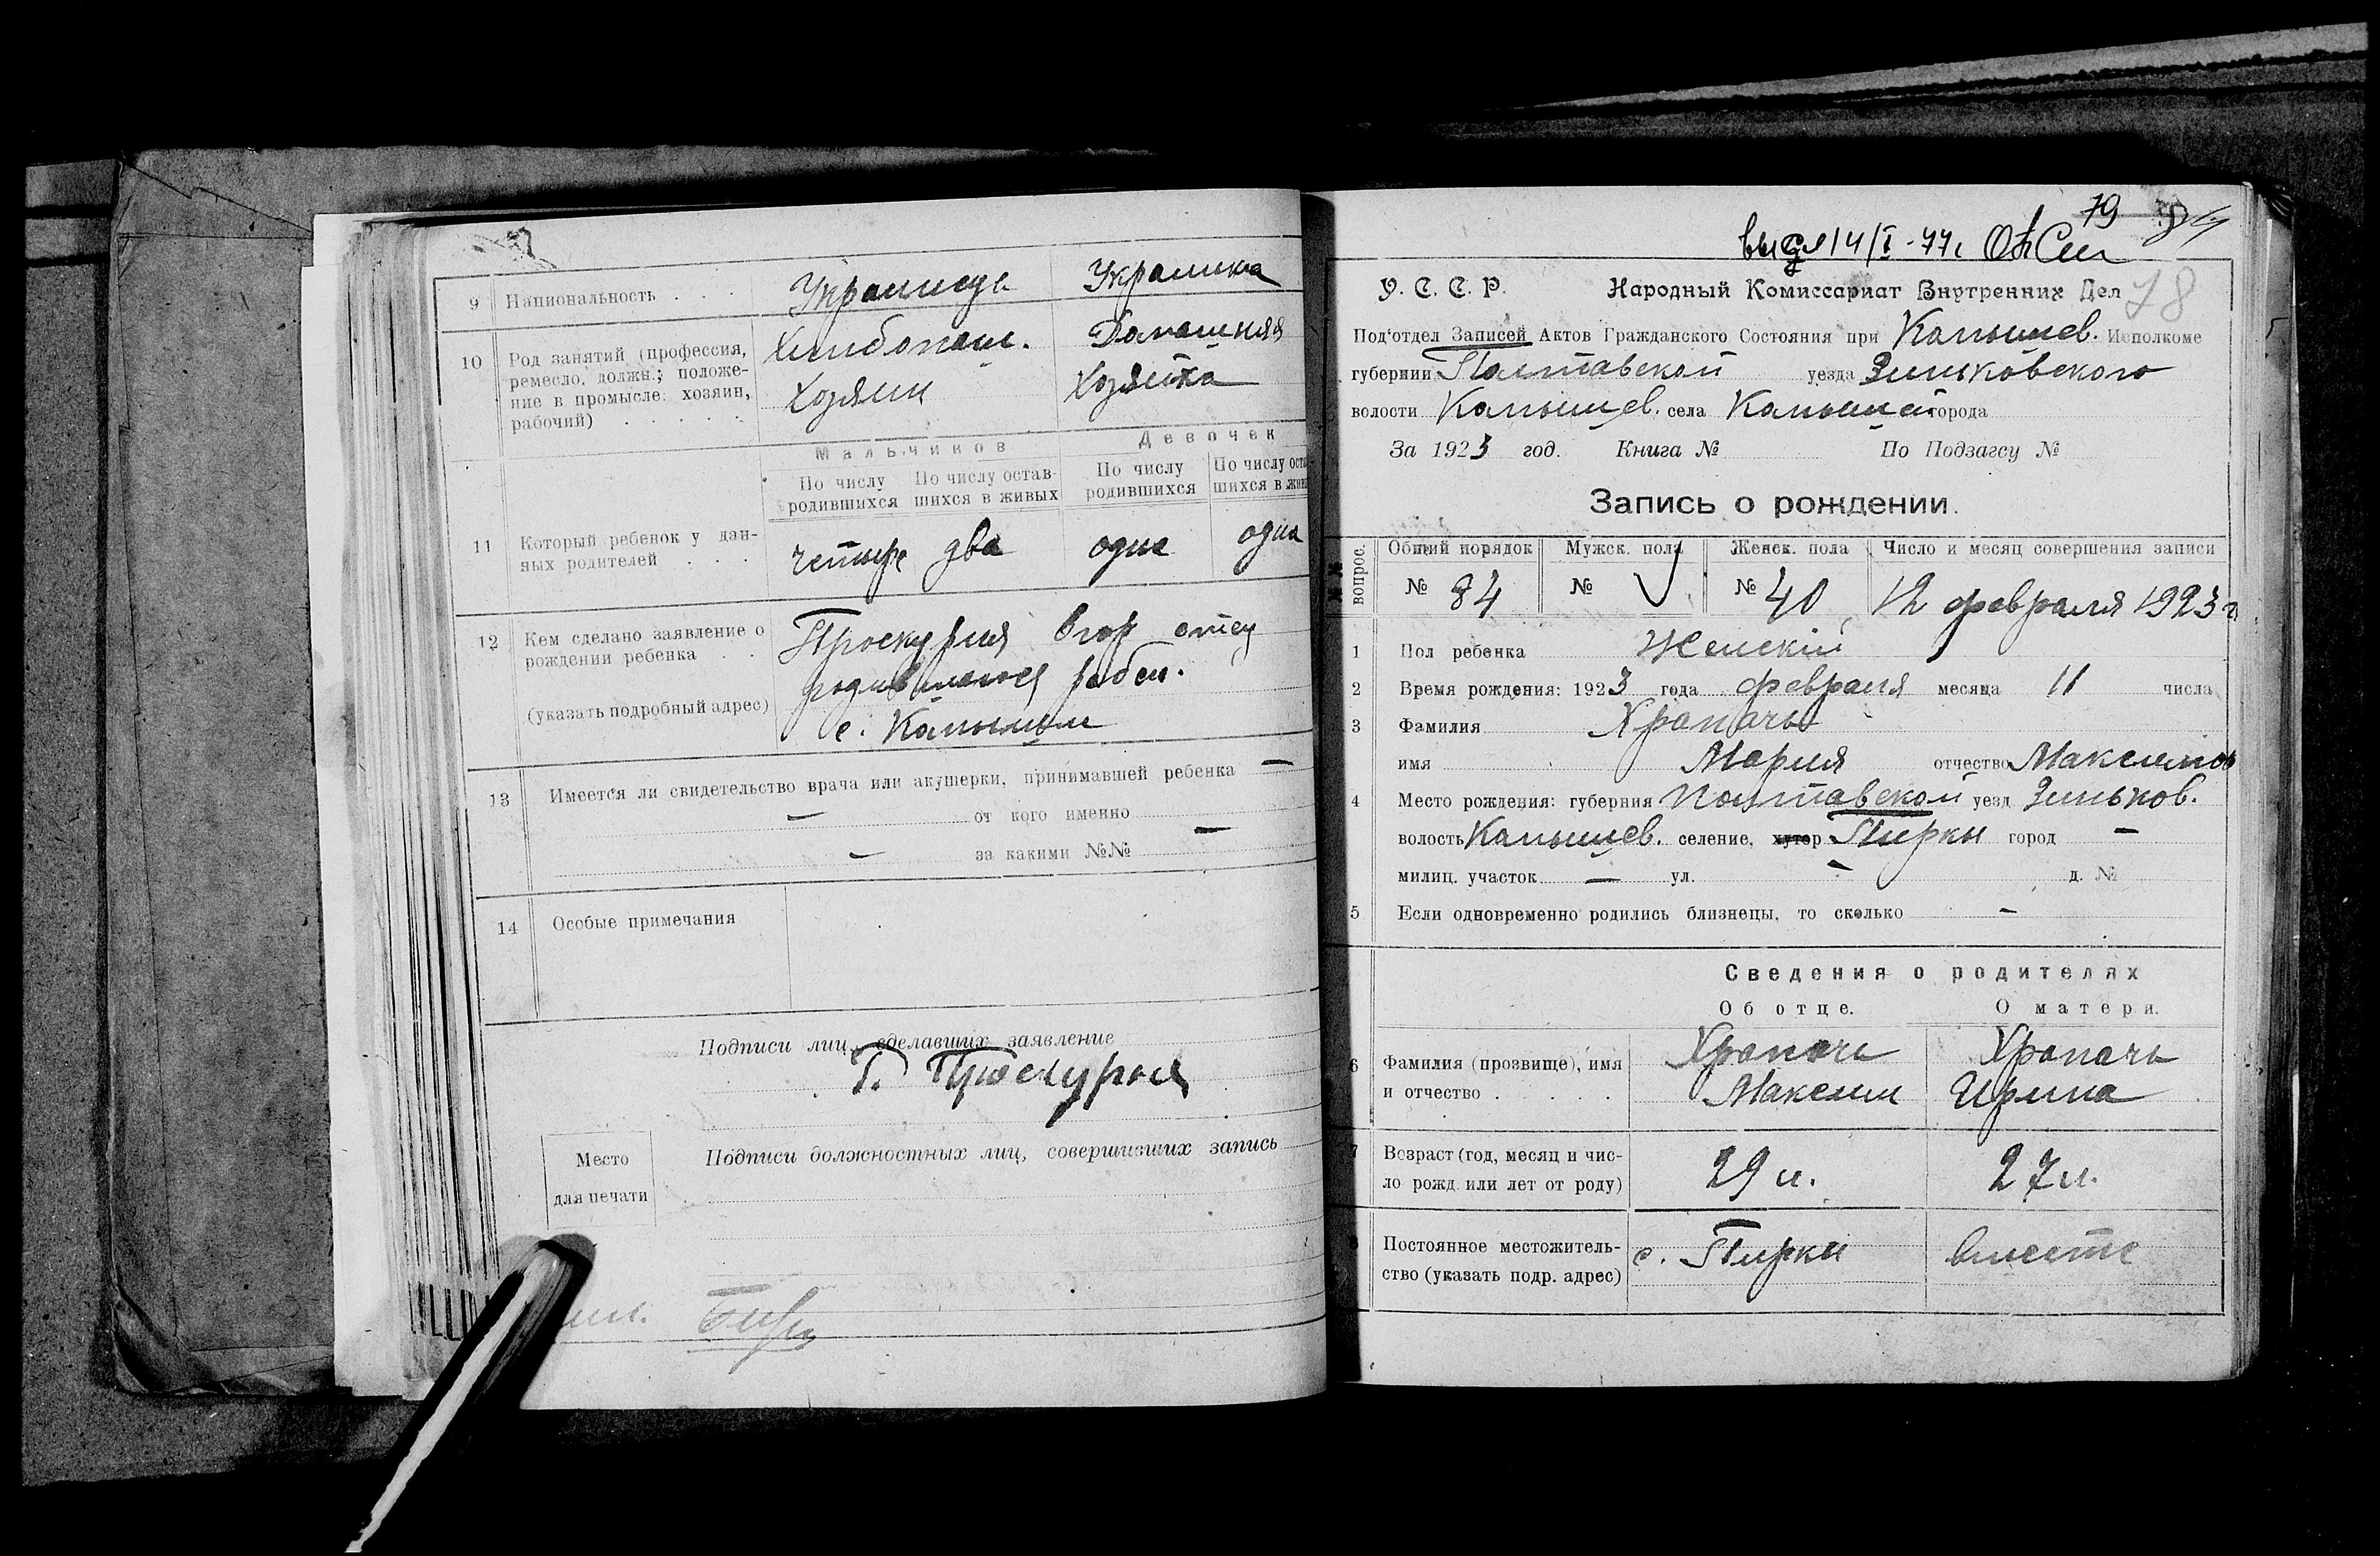 9 Национальность Украинец Украинка
10 Род занятий (профессия, Хлибопаш. Домашняя
ремесло, должн.; положе-
ние в промысле: хозяин, Хозяин Хозяйка
рабочий)
Мальчиков Девочек
По числу По числу остав- По числу По числу оста
родившихся шихся в живых родившихся шихся в жив
11 Который ребенок у дан- четыре два одна одна
ных родителей
12 Кем сделано заявление о Проскурня Егор отец
рождении ребенка родившагося ребен.
(указать подробный адрес) с. Камыши
13 Имеется ли свидетельство врача или акушерки, принимавшей ребенка —
— от кого именно —
— за какими №№
14 Особые примечания
Подписи лиц, сделавших заявление
Г. Проскурня
Место Подписи должностных лиц, совершивших запись
для печати
79
выд 14/I-77г
78
У. С. С. Р. Народный Комиссариат Внутренних Дел
Под'отдел Записей Актов Гражданского Состояния при Камышев. Исполкоме
губернии Полтавской уезда Зиньковского
волости Камышев. села Камыши города
За 1923 год. Книга № По Подзагсу №
Запись о рождении.
№№ вопрос. Общий порядок Мужск. пола Женск. пола Число и месяц совершения записи
№ 84 № № 40 12 февраля 1923 г
1 Пол ребенка Женский
2 Время рождения: 1923 года февраля месяца 11 числа
3 Фамилия Храпачь
имя Мария отчество Максимов
4 Место рождения: губерния Полтавской уезд Зиньков.
волость Камышев. селение, хутор Пирки город —
милиц. участок — ул. — д. №
5 Если одновременно родились близнецы, то сколько —
Сведения о родителях
Об отце. О матери.
6 Фамилия (прозвище), имя Храпачь Храпачь
и отчество Максим Ирина
7 Возраст (год, месяц и чис- 29 л. 27 л.
ло рожд. или лет от роду)
8 Постоянное местожитель- с. Пирки вместе
ство (указать подр. адрес)